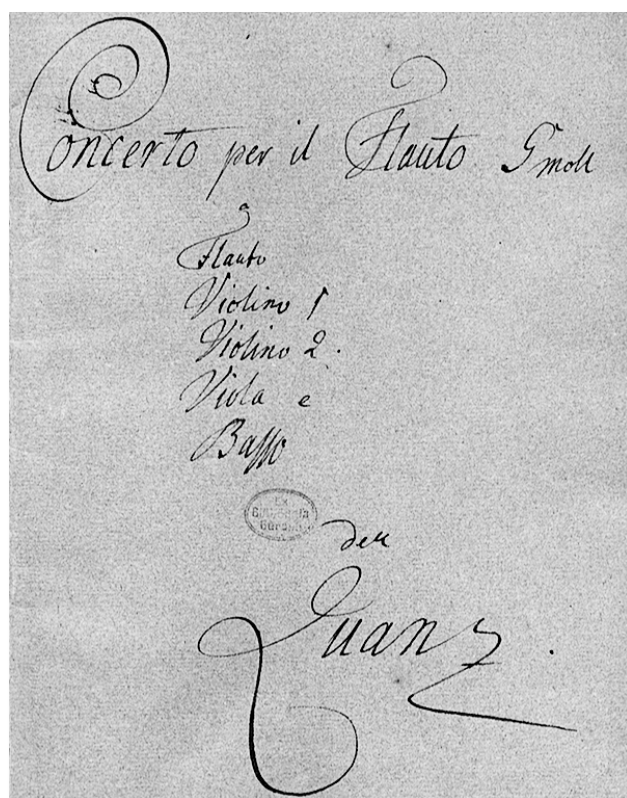 Concerto per il Flauto G moll
a
Flauto
Violino 1
Violino 2.
Viola e
Basso
Ex
Quanz.